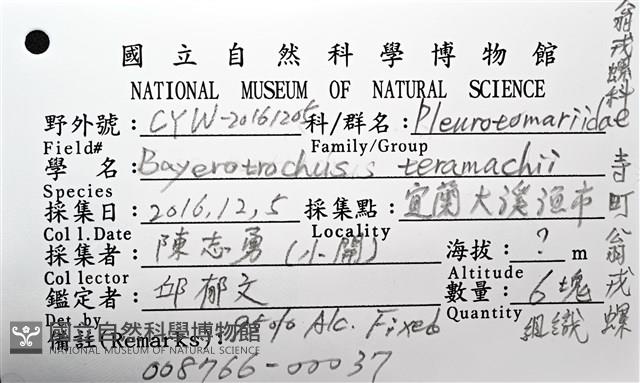 國立自然科學博物館
NATIONAL MUSEUM OF NATURAL SCIENCE
野外號：CYW-20161205 科/群名：Pleurotomariidae
Field# Family/Group
翁戎螺科
學名：Bayerotrochus teramachii
Species
寺町翁戎螺
採集日：2016.12.5 採集點：宜蘭大溪漁市
Coll.Date Locality
採集者：陳志勇(小開) 海拔：? m
Collector Altitude
鑑定者：邱郁文 數量：6塊
Det.by Quantity
組織
備註(Remarks)：95% Alc. Fixed
008766-00037
國立自然科學博物館
NATIONAL MUSEUM OF NATURAL SCIENCE